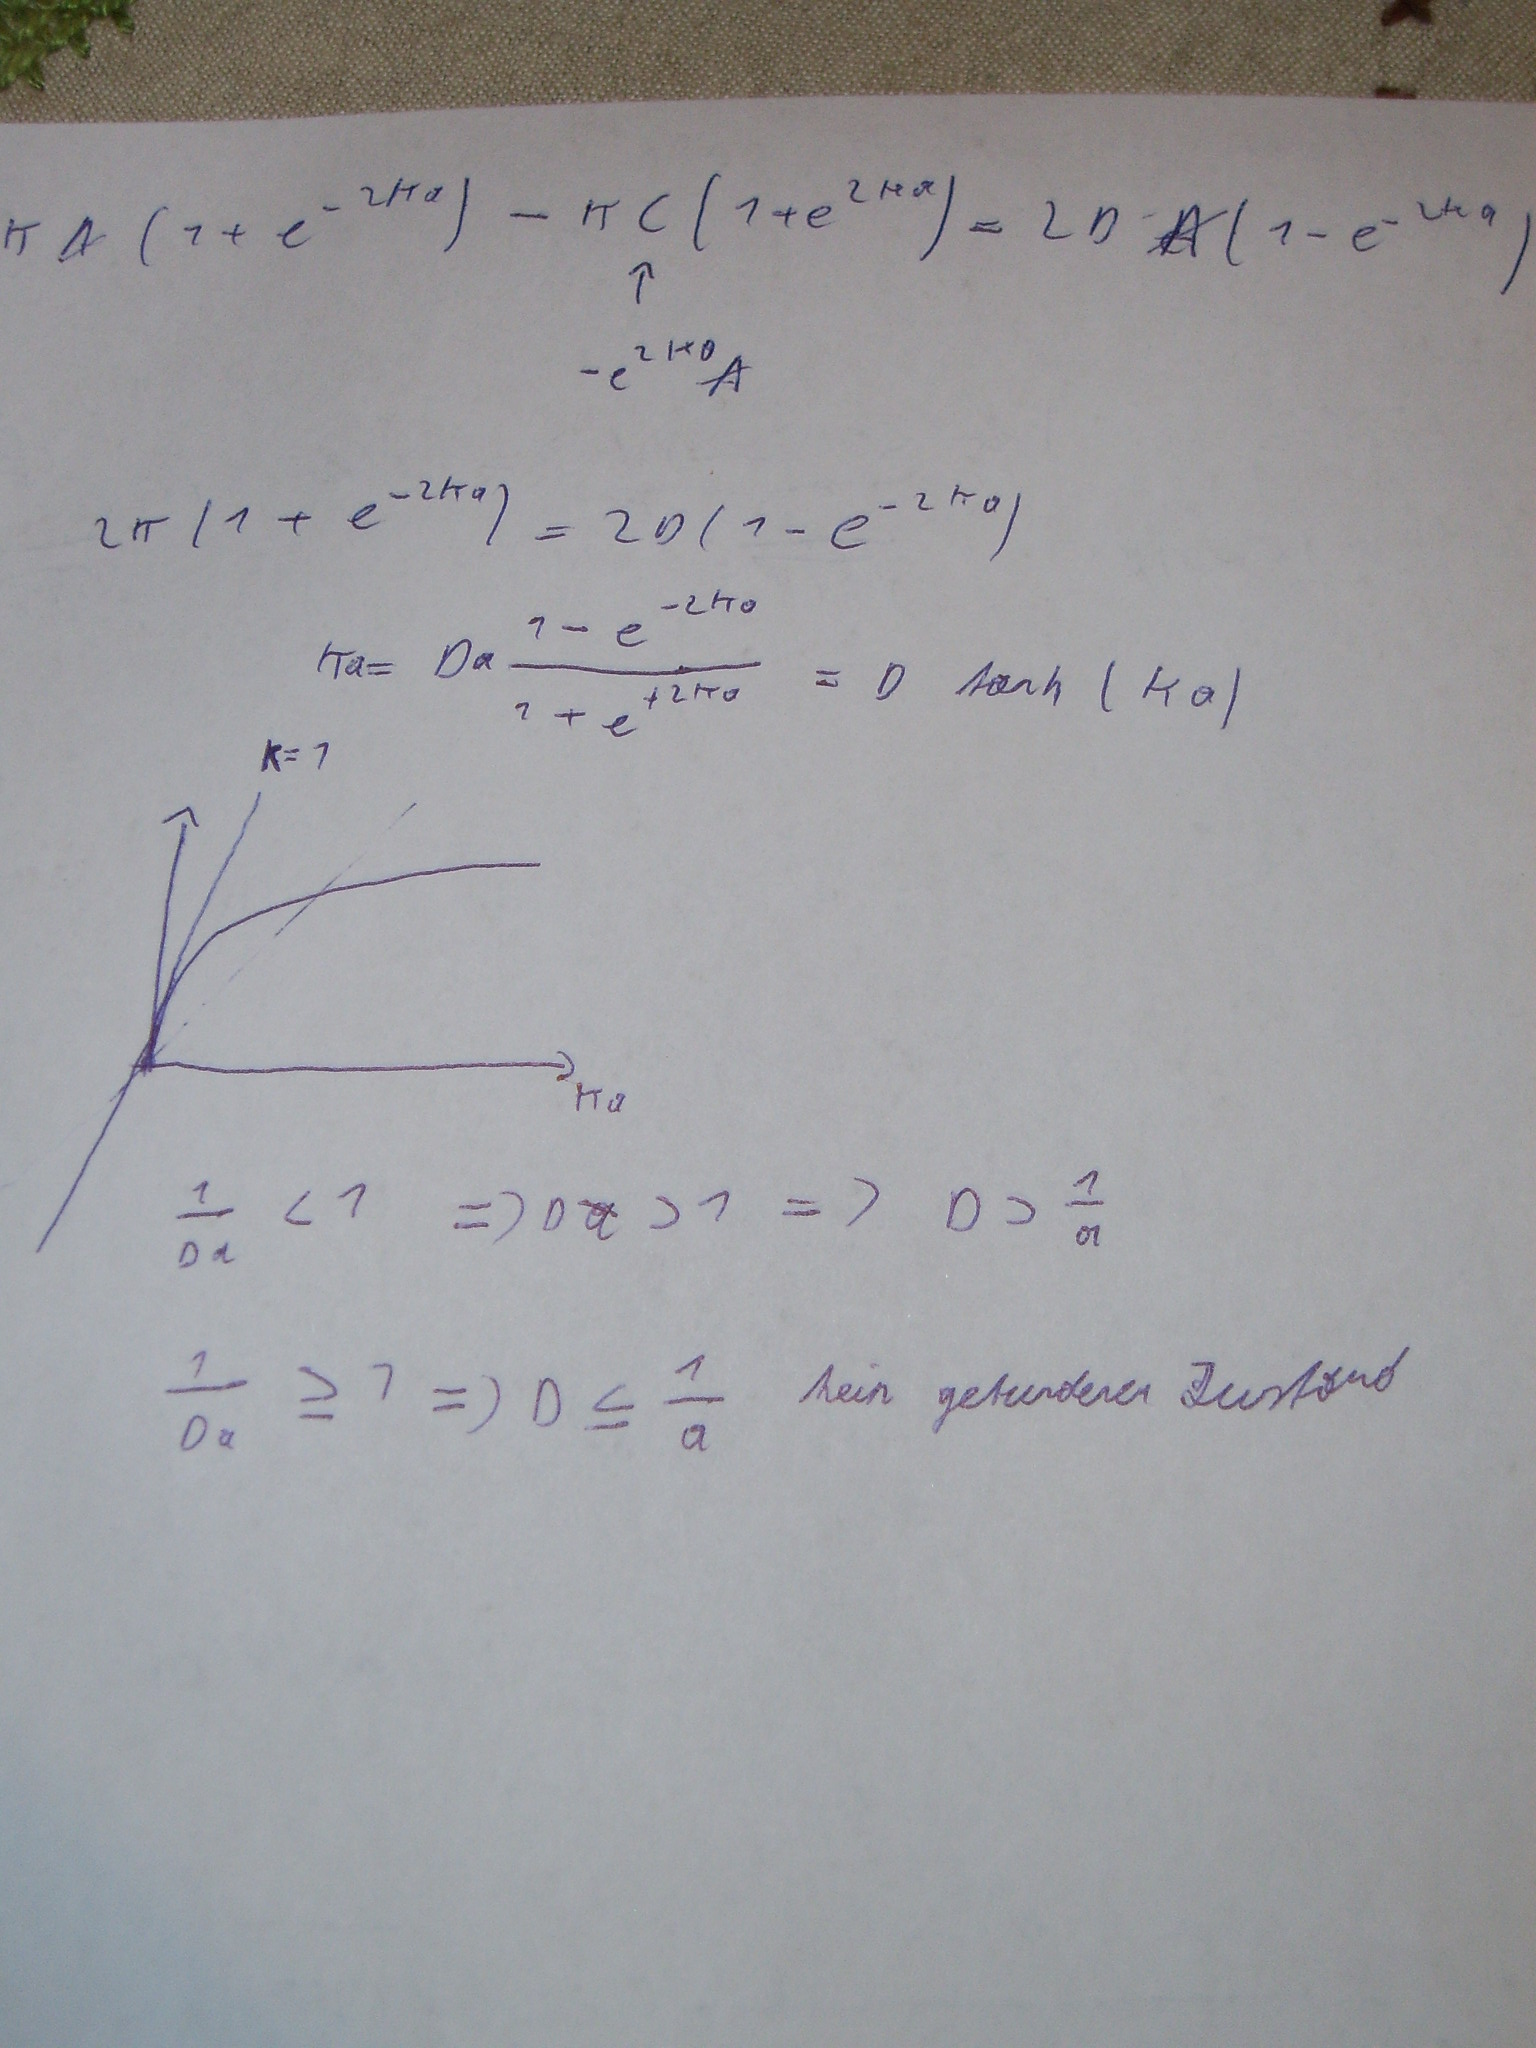 κ A (1 + e^{-2κa}) - κ C (1 + e^{2κa}) = 2D A (1 - e^{-2κa})
↑
-e^{2κa} A
2κ (1 + e^{-2κa}) = 2D (1 - e^{-2κa})
κa = Da \frac{1 - e^{-2κa}}{1 + e^{+2κa}} = D tanh (κa)
κ=1
κa
\frac{1}{Da} < 1 => Da > 1 => D > \frac{1}{a}
\frac{1}{Da} ≥ 1 => D ≤ \frac{1}{a} kein gebundener Zustand